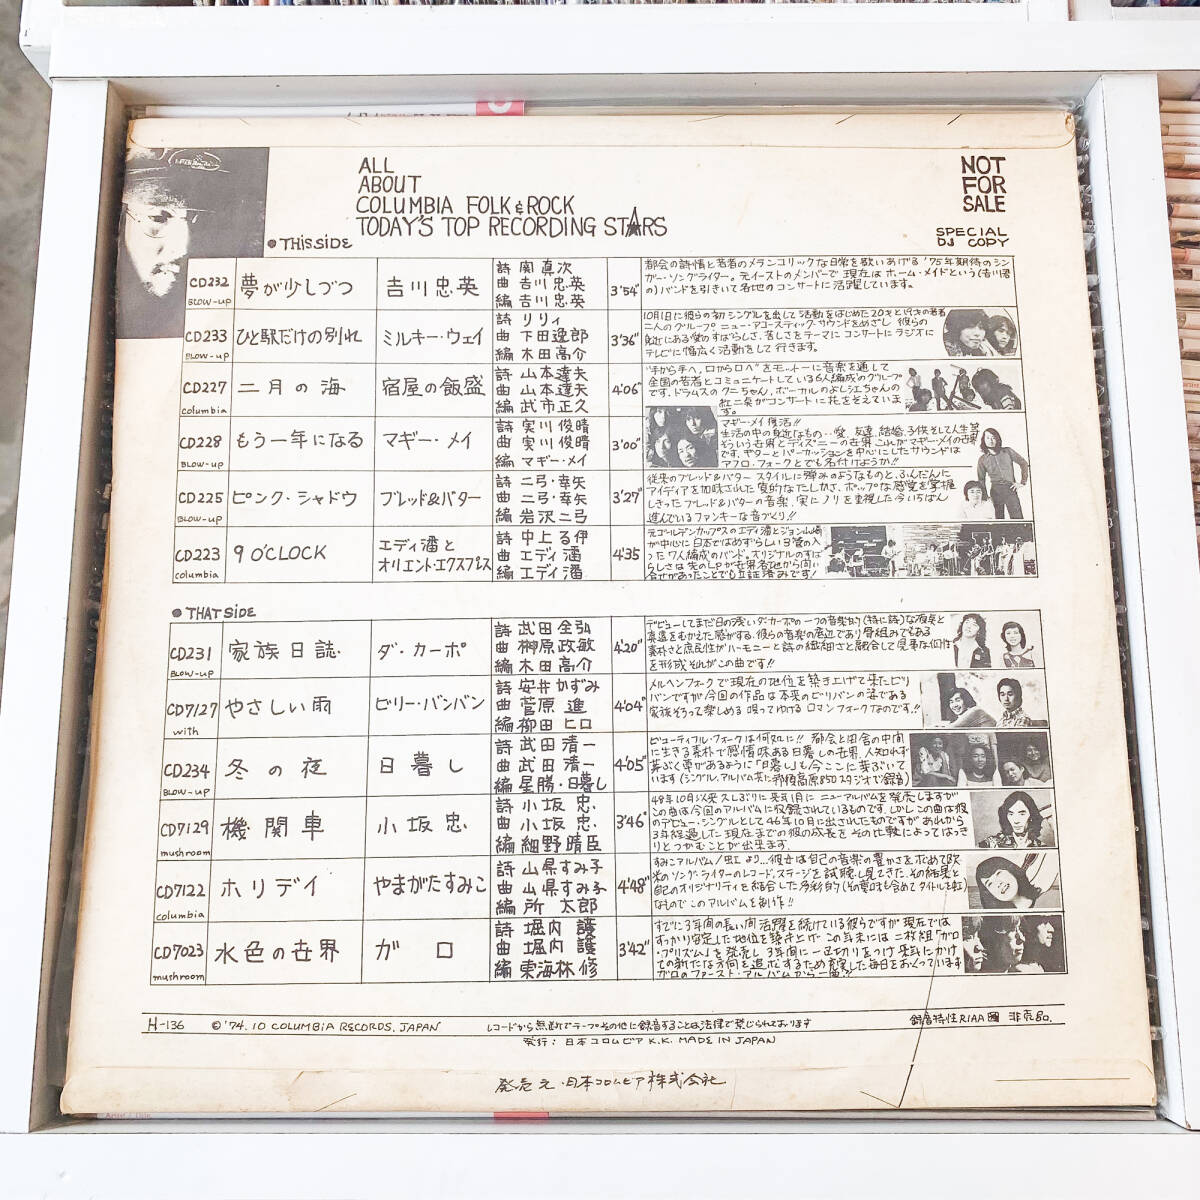 ALL
ABOUT
COLUMBIA FOLK & ROCK
TODAY'S TOP RECORDING STARS
NOT
FOR
SALE
SPECIAL
DJ COPY
● THIS SIDE
CD232
BLOW-UP
夢が少しづつ
吉川忠英
詩 関真次
曲 吉川忠英
編 吉川忠英
3'54"
都会の詩情と若者のメランコリックな日常を歌いあげる'75年期待のシン
ガー・ソングライター。元イーストのメンバーで現在はホーム・メイドという(吉川君
の)バンドを引きいて各地のコンサートに活躍しています。
CD233
BLOW-UP
ひと駅だけの別れ
ミルキー・ウェイ
詩 リリィ
曲 下田逸郎
編 木田高介
3'36"
二人のグループ ニュー・アコースティック・サウンドをめざし 彼らの
身近にある愛のすばらしさ、苦しさをテーマに コンサートに ラジオに
テレビに幅広く活動をして行きます。
CD227
columbia
二月の海
宿屋の飯盛
詩 山本達夫
曲 山本達夫
編 武市正久
4'06"
"手から手へ、口から口へ"をモットーに音楽を通して
全国の若者とコミュニケートしている6人編成のグループ
です。ドラムスのクニちゃん、ボーカルのよし江ちゃんの
紅二臭がコンサートに花をそえていま
す。
CD228
BLOW-UP
もう一年になる
マギー・メイ
詩 実川俊晴
曲 実川俊晴
編 マギー・メイ
3'00"
マギー・メイ復活!!
そういう世界とディズニーの世界 これがマギー・メイの世界
です。ギターとパーカッションを中心にしたサウンドは
アフロ・フォークとでも名付けようか!!
CD225
BLOW-UP
ピンク・シャドウ
ブレッド&バター
詩 二弓・幸矢
曲 二弓・幸矢
編 岩沢二弓
3'27"
従来のブレッド&バター スタイルに弾みのようなものと、ふんだんに
アイディアを加味された質的なたしかさ、ポップな感覚を掌握
しきったブレッド&バターの音楽、実にノリを重視した今いちばん
進んでいるファンキーな音づくり!!
CD223
columbia
9 O'CLOCK
エディ潘と
オリエント・エクスプレス
詩 中上る伊
曲 エディ潘
編 エディ潘
4'35
元ゴールデンカップスのエディ潘とジョン山崎
が中心に日本ではめずらしい3管の入
った7人編成のバンド。オリジナルのすば
らしさは先のLPが世界各地から問い
合せがあったことでも立証済みです!
● THAT SIDE
CD231
BLOW-UP
家族日誌
ダ・カーポ
詩 武田全弘
曲 榊原政敏
編 木田高介
4'20"
デビューしてまだ日の浅いダ・カーポの一つの音楽的(特に詩)な夜突と
真価をむかえた感がする。彼らの音楽の底辺であり骨組みでもある
素朴さと庶民性がハーモニーと詩の繊細さと融合して見事な個性
を形成 それがこの曲です!!
CD7127
with
やさしい雨
ビリー・バンバン
詩 安井かずみ
曲 菅原進
編 柳田ヒロ
4'04"
メルヘンフォークで現在の地位を築き上げて来たビリ
バンですが今回の作品は本来のビリバンの姿である
家族そろって楽しめる 唄ってゆける ロマンフォークなのです。!!
CD234
BLOW-UP
冬の夜
日暮し
詩 武田清一
曲 武田清一
編 星勝・日暮し
4'05"
ビューティフル・フォークは何処に!! 都会と田舎の中間
に生きる素朴で感情味ある日暮しの世界 人知れず
います (シングル、アルバム共に那須高原850スタジオで録音)
CD7129
mushroom
機関車
小坂忠
詩 小坂忠.
曲 小坂忠.
編 細野晴臣
3'46"
48年10月以来久しぶりに来年1月に ニューアルバムを発売しますが
この曲は今回のアルバムに収録されているものです。しかしこの曲は彼
のデビュー・シングルとして46年10月に出されたものですがあれから
3年経過した現在までの彼の成長をその比較によってはっき
りとつかむことが出来ます。
CD7122
columbia
ホリデイ
やまがたすみこ
詩 山県すみ子
曲 山県すみ子
編 所太郎
4'48"
すみこアルバム/虹より...彼女は自己の音楽の豊かさを求めて欧
米のソング・ライターのレコード、ステージを試聴し見てきた。その結果と
自己のオリジナリティを結合した多彩的(その意味も含めてタイトルを虹)
なものでこのアルバムを創作!!
CD7023
mushroom
水色の世界
ガロ
詩 堀内護
曲 堀内護
編 東海林修
3'42"
すでに3年間の長い間活躍を続けている彼らですが 現在では
すっかり安定した地位を築き上げ この年末には二枚組「ガロ
・プリズム」を発売し 3年間に一区切りをつけ 来年にかけ
ての新たな方向を追求するため充実した毎日をおくっています
ガロのファースト・アルバムから一曲!!
H-136
© '74.10 COLUMBIA RECORDS. JAPAN
レコードから無断でテープその他に録音することは法律で禁じられております
録音特性RIAA 非売品.
発行: 日本コロムビア K.K. MADE IN JAPAN
発売元・日本コロムビア株式会社